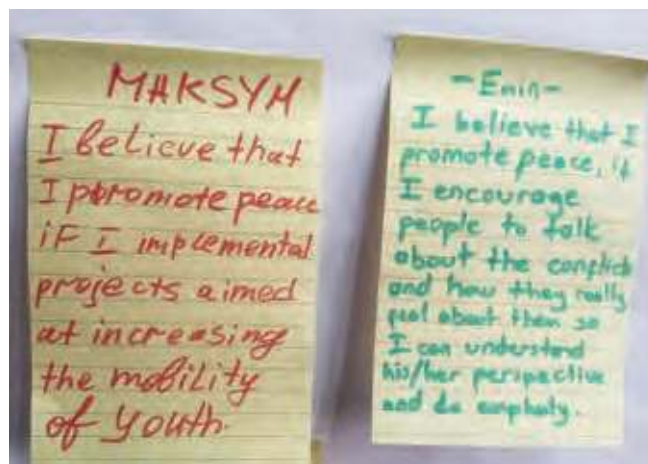 MAKSYM
I believe that
I promote peace
if I implemental
projects aimed
at increasing
the mobility
of Youth.
- Emin -
I believe that I
promote peace, if
I encourage
people to talk
about the conflicts
and how they really
feel about them so
I can understand
his/her perispective
and do emphaty.